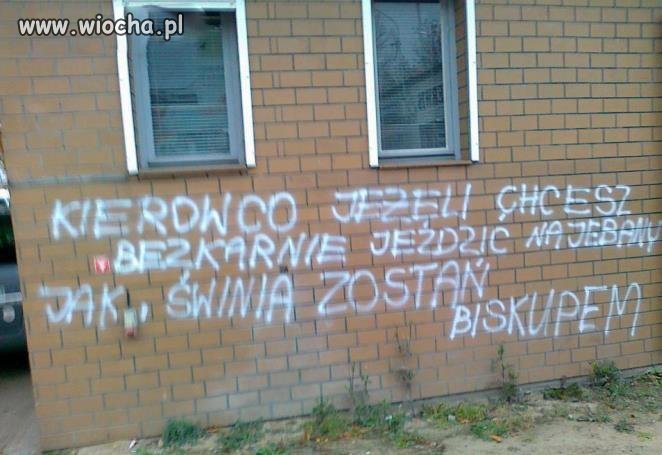 www.wiocha.pl
KIEROWCO JEŻELI CHCESZ
BEZKARNIE JEŹDZIĆ NAJEBANY
JAK ŚWINIA ZOSTAŃ
BISKUPEM